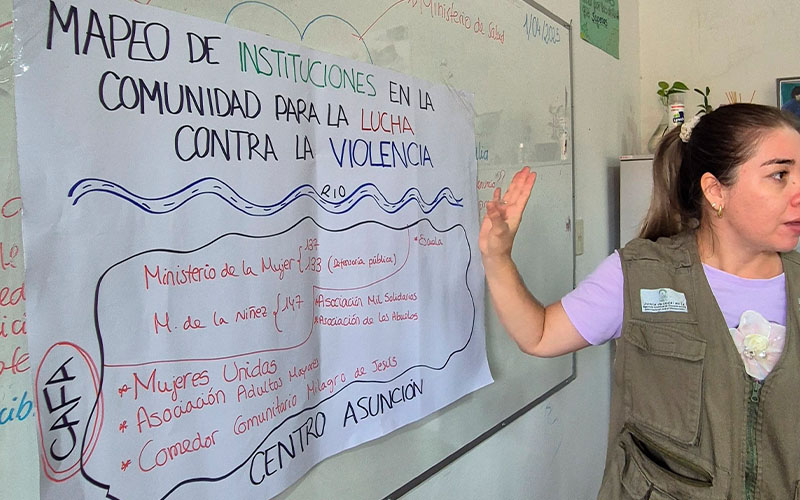 Ministerio de Salud
1/04/2025
MAPEO DE INSTITUCIONES EN LA
COMUNIDAD PARA LA LUCHA
CONTRA LA VIOLENCIA
RIO
Ministerio de la Mujer { 137
133 (Defensoría pública)
* Escuela
M. de la Niñez { 147
* Asociación Mil Solidarias
* Asociación de las Abuelas
* Mujeres Unidas
* Asociación Adultos Mayores
* Comedor Comunitario Milagro de Jesus
CAFA
CENTRO ASUNCIÓN